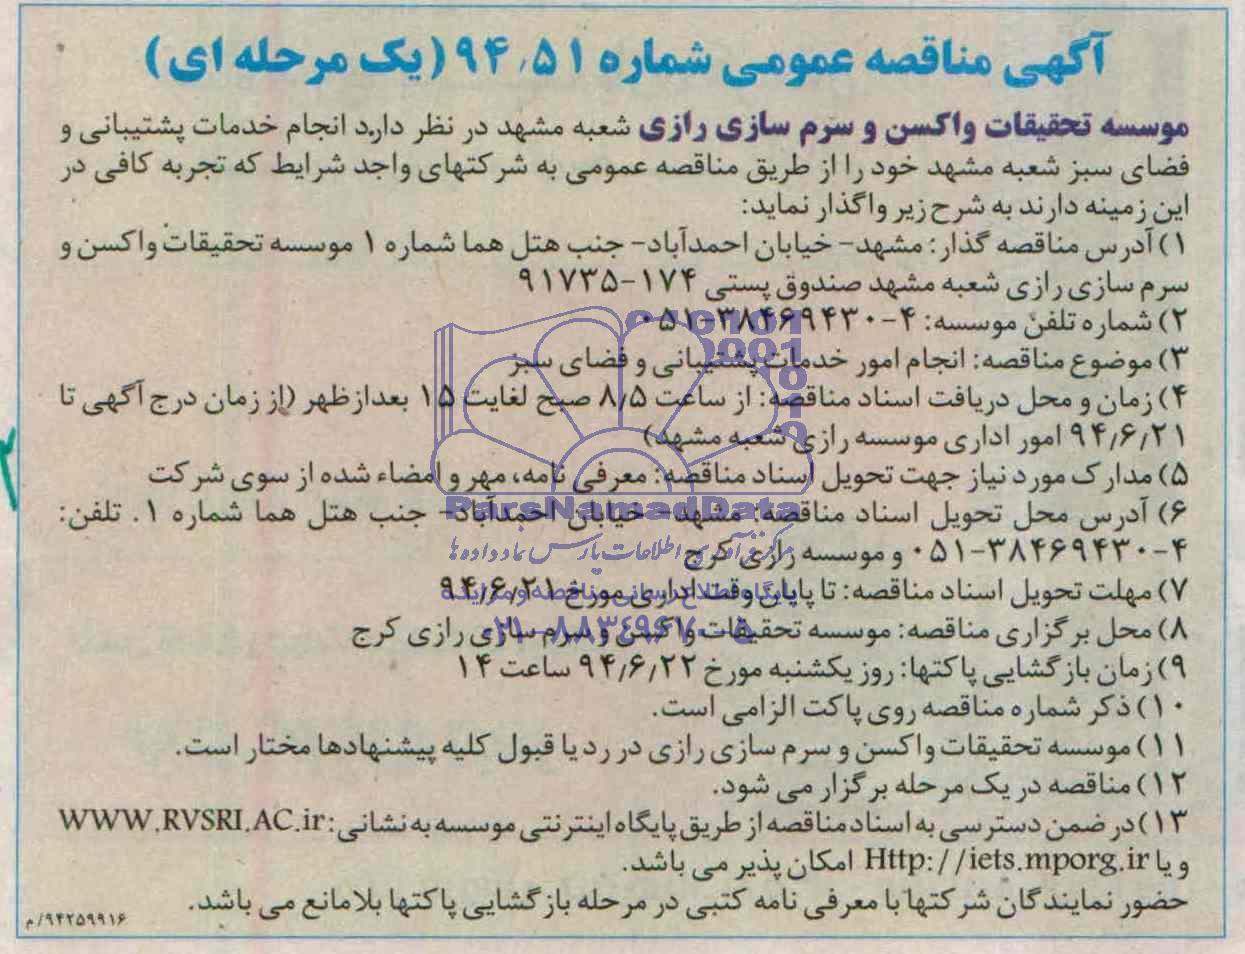 آگهی مناقصه عمومی شماره ۹۴٫۵۱ (یک مرحله ای)
موسسه تحقیقات واکسن و سرم سازی رازی شعبه مشهد در نظر دارد انجام خدمات پشتیبانی و
فضای سبز شعبه مشهد خود را از طریق مناقصه عمومی به شرکتهای واجد شرایط که تجربه کافی در
این زمینه دارند به شرح زیر واگذار نماید:
۱) آدرس مناقصه گذار: مشهد- خیابان احمدآباد- جنب هتل هما شماره ۱ موسسه تحقیقات واکسن و
سرم سازی رازی شعبه مشهد صندوق پستی ۱۷۴-۹۱۷۳۵
۲) شماره تلفن موسسه: ۴-۳۸۴۶۹۴۳۰-۰۵۱
۳) موضوع مناقصه: انجام امور خدمات پشتیبانی و فضای سبز
۴) زمان و محل دریافت اسناد مناقصه: از ساعت ۸٫۵ صبح لغایت ۱۵ بعدازظهر (از زمان درج آگهی تا
۹۴٫۶٫۲۱ امور اداری موسسه رازی شعبه مشهد)
۵) مدارک مورد نیاز جهت تحویل اسناد مناقصه: معرفی نامه، مهر و امضاء شده از سوی شرکت
۶) آدرس محل تحویل اسناد مناقصه: مشهد- خیابان احمدآباد- جنب هتل هما شماره ۱. تلفن:
۴-۳۸۴۶۹۴۳۰-۰۵۱ و موسسه رازی کرج
۷) مهلت تحویل اسناد مناقصه: تا پایان وقت اداری مورخ ۹۴٫۶٫۲۱
۸) محل برگزاری مناقصه: موسسه تحقیقات واکسن و سرم سازی رازی کرج
۹) زمان بازگشایی پاکتها: روز یکشنبه مورخ ۹۴٫۶٫۲۲ ساعت ۱۴
۱۰) ذکر شماره مناقصه روی پاکت الزامی است.
۱۱) موسسه تحقیقات واکسن و سرم سازی رازی در رد یا قبول کلیه پیشنهادها مختار است.
۱۲) مناقصه در یک مرحله برگزار می شود.
۱۳) در ضمن دسترسی به اسناد مناقصه از طریق پایگاه اینترنتی موسسه به نشانی: WWW.RVSRI.AC.ir
و یا Http://iets.mporg.ir امکان پذیر می باشد.
حضور نمایندگان شرکتها با معرفی نامه کتبی در مرحله بازگشایی پاکتها بلامانع می باشد.
۹۴۲۵۹۹۱۶/م
ParsNamadData
مرکز فرآوری اطلاعات پارس نماد داده ها
پایگاه اطلاع رسانی مناقصه و مزایده
۰۲۱-۸۸۳۴۹۶۷۰-۵